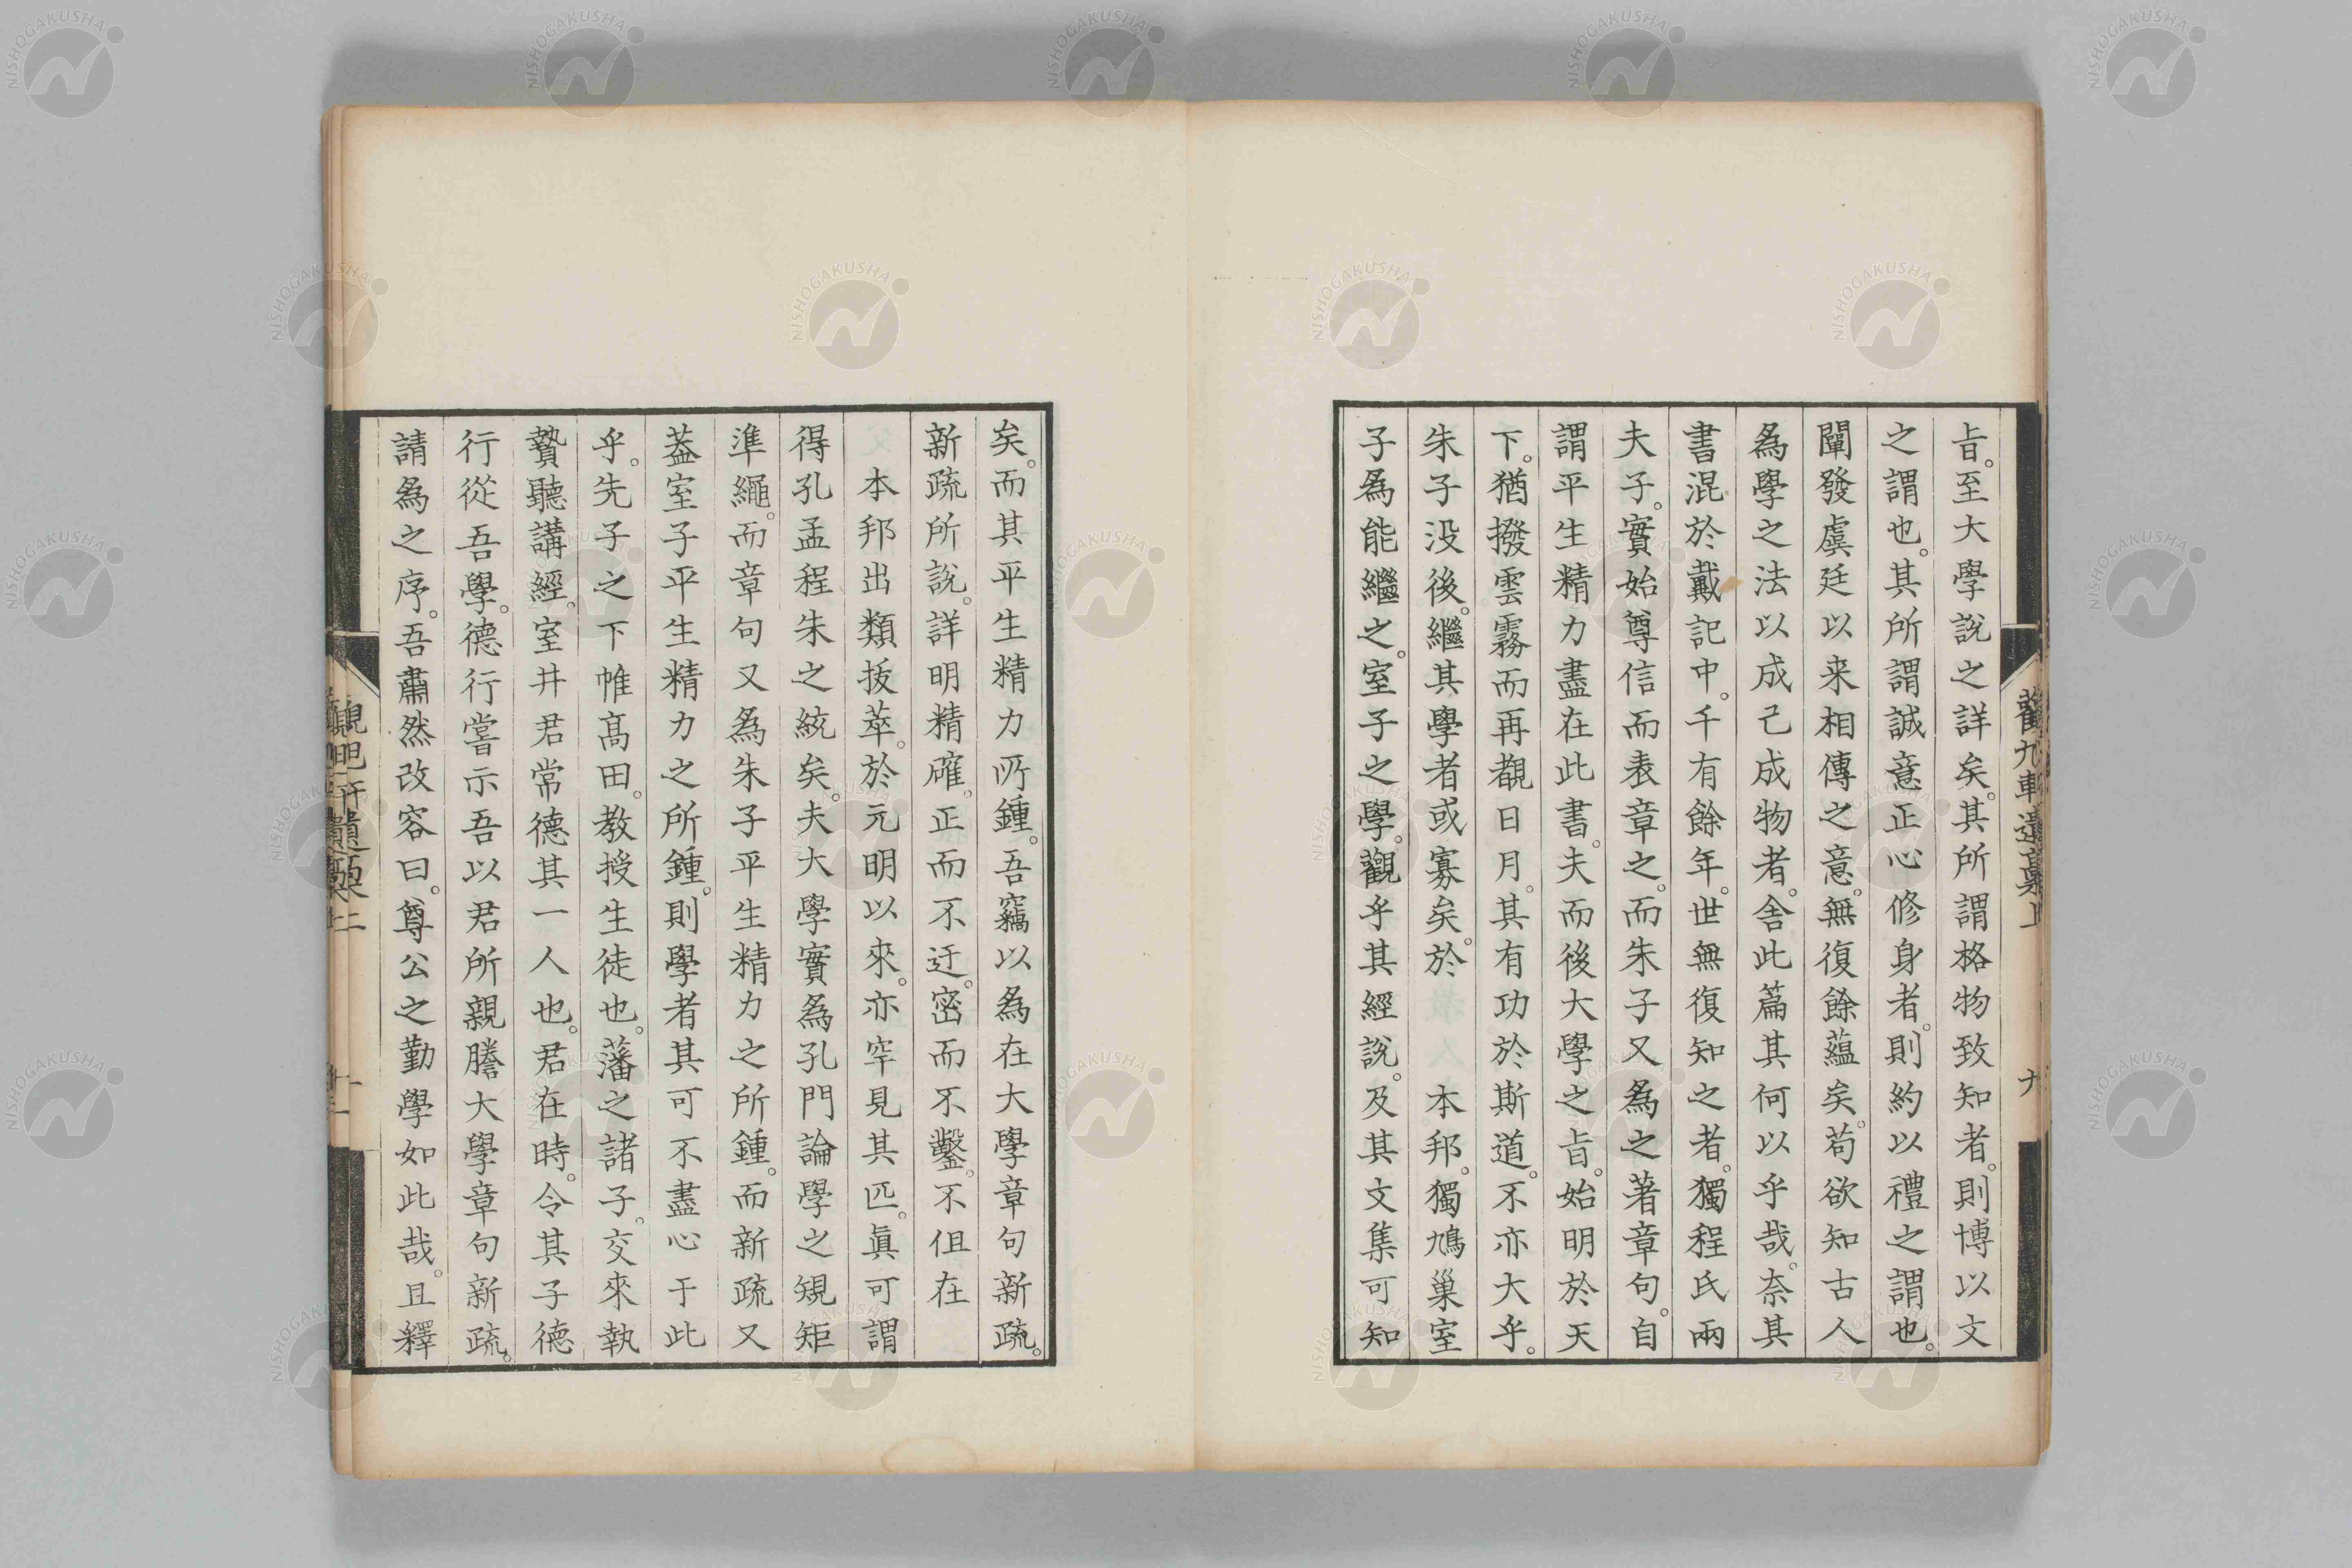 旨。至大學說之詳矣。其所謂格物致知者。則博以文
之謂也。其所謂誠意正心修身者。則約以禮之謂也。
闡發虞廷以来相傳之意。無復餘蘊矣。苟欲知古人
為學之法以成己成物者。舍此篇其何以乎哉。奈其
書混於戴記中。千有餘年。世無復知之者。獨程氏兩
夫子。實始尊信而表章之。而朱子又為之著章句。自
謂平生精力盡在此書。夫而後大學之旨。始明於天
下。猶撥雲霧而再覩日月。其有功於斯道。不亦大乎。
朱子没後。繼其學者或寡矣。於 本邦。獨鳩巢室
子為能繼之。室子之學。觀乎其經說。及其文集可知
矣。而其平生精力所鍾。吾竊以為在大學章句新疏。
新疏所說。詳明精確。正而不迂。密而不鑿。不但在
本邦出類拔萃。於元明以來。亦罕見其匹。眞可謂
得孔孟程朱之統矣。夫大學實為孔門論學之規矩
準繩。而章句又為朱子平生精力之所鍾。而新疏又
葢室子平生精力之所鍾。則學者其可不盡心于此
乎。先子之下帷高田。教授生徒也。藩之諸子。交來執
贄聽講經。室井君常德其一人也。君在時。令其子德
行從吾學。德行嘗示吾以君所親謄大學章句新疏。
請為之序。吾肅然改容曰。尊公之勤學如此哉。且釋
NISHOGAKUSHA